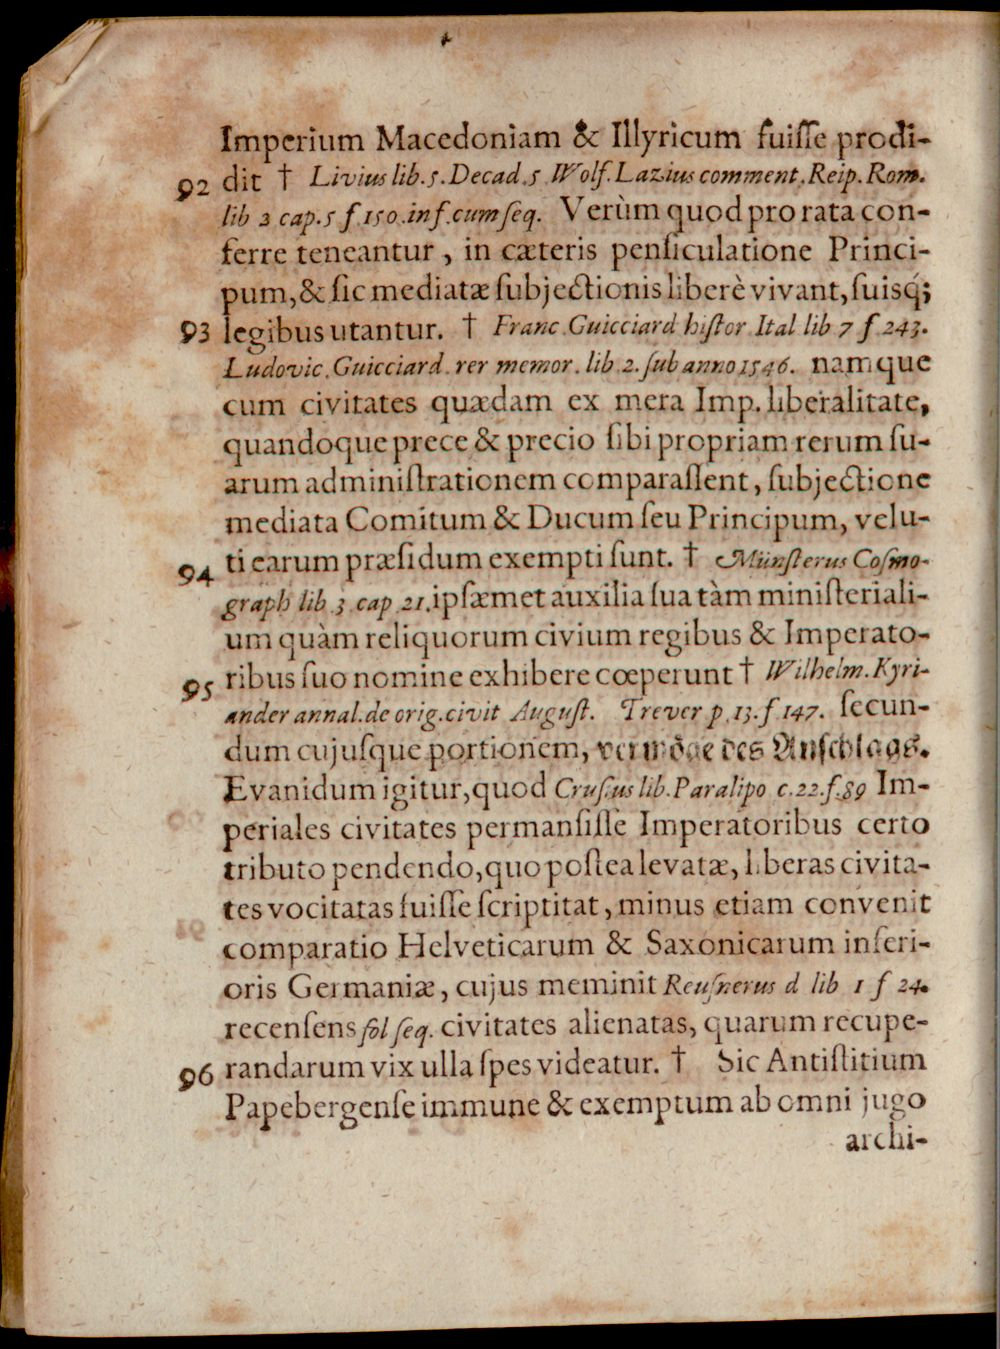 Imperium Macedoniam & Illyricum fuiſſe prodi-
92 dit † Livius lib. 5. Decad. 5 Wolf. Lazius comment. Reip. Rom.
lib 2 cap. 5 f. 150. inf. cum ſeq. Verùm quod pro rata con-
ferre teneantur, in cæteris penſiculatione Princi-
pum, & ſic mediatæ ſubjectionis liberè vivant, ſuisq́;
93 legibus utantur. † Franc. Guicciard hiſtor. Ital lib 7 f 243.
Ludovic. Guicciard. rer memor. lib. 2. ſub anno 1546. namque
cum civitates quædam ex mera Imp. liberalitate,
quandoque prece & precio ſibi propriam rerum ſu-
arum adminiſtrationem comparaſſent, ſubjectione
mediata Comitum & Ducum ſeu Principum, velu-
94 ti earum præſidum exempti ſunt. † Münſterus Coſmo-
graph lib. 3 cap. 21. ipſæmet auxilia ſua tàm miniſteriali-
um quàm reliquorum civium regibus & Imperato-
95 ribus ſuo nomine exhibere cœperunt † Wilhelm. Kyri-
ander annal. de orig. civit Auguſt. Trever p. 13. f 147. ſecun-
dum cujuſque portionem, vermöge des Anſchlags.
Evanidum igitur, quod Cruſius lib. Paralipo c. 22. f. 89 Im-
periales civitates permanſiſſe Imperatoribus certo
tributo pendendo, quo poſtea levatæ, liberas civita-
tes vocitatas fuiſſe ſcriptitat, minus etiam convenit
comparatio Helveticarum & Saxonicarum inferi-
oris Germaniæ, cujus meminit Reuſnerus d lib 1 f 24.
recenſens fol ſeq. civitates alienatas, quarum recupe-
96 randarum vix ulla ſpes videatur. † Sic Antiſtitium
Papebergenſe immune & exemptum ab omni jugo
archi-